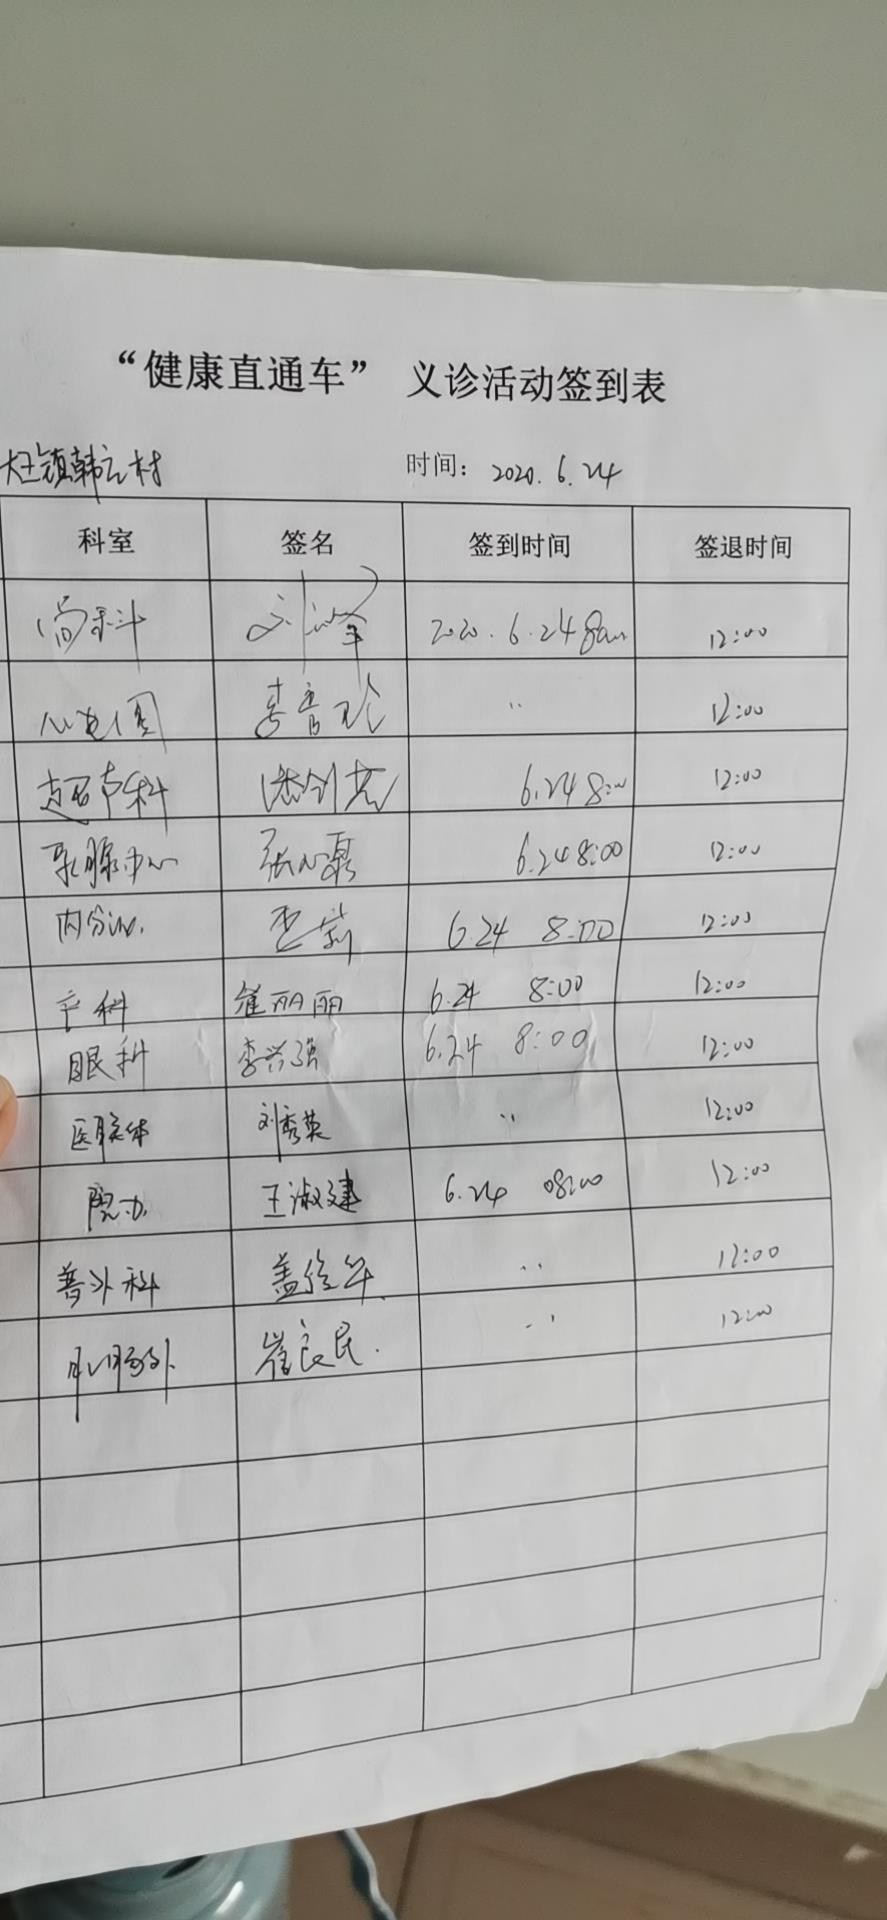 “健康直通车” 义诊活动签到表
大王镇韩 村 时间: 2020.6.24
科室 签名 签到时间 签退时间
科 刘 2020.6.24 8am 12:00
心电图 李 珍 〃 12:00
超声科 潘剑 6.24 8:00 12:00
乳腺中心 张 磊 6.24 8:00 12:00
内分泌 6.24 8:00 12:00
产科 崔丽丽 6.24 8:00 12:00
眼科 李兴强 6.24 8:00 12:00
医联体 刘秀英 〃 12:00
院办 王淑建 6.24 08:00 12:00
普外科 盖 〃 12:00
肛肠外 崔良民. 〃 12:00